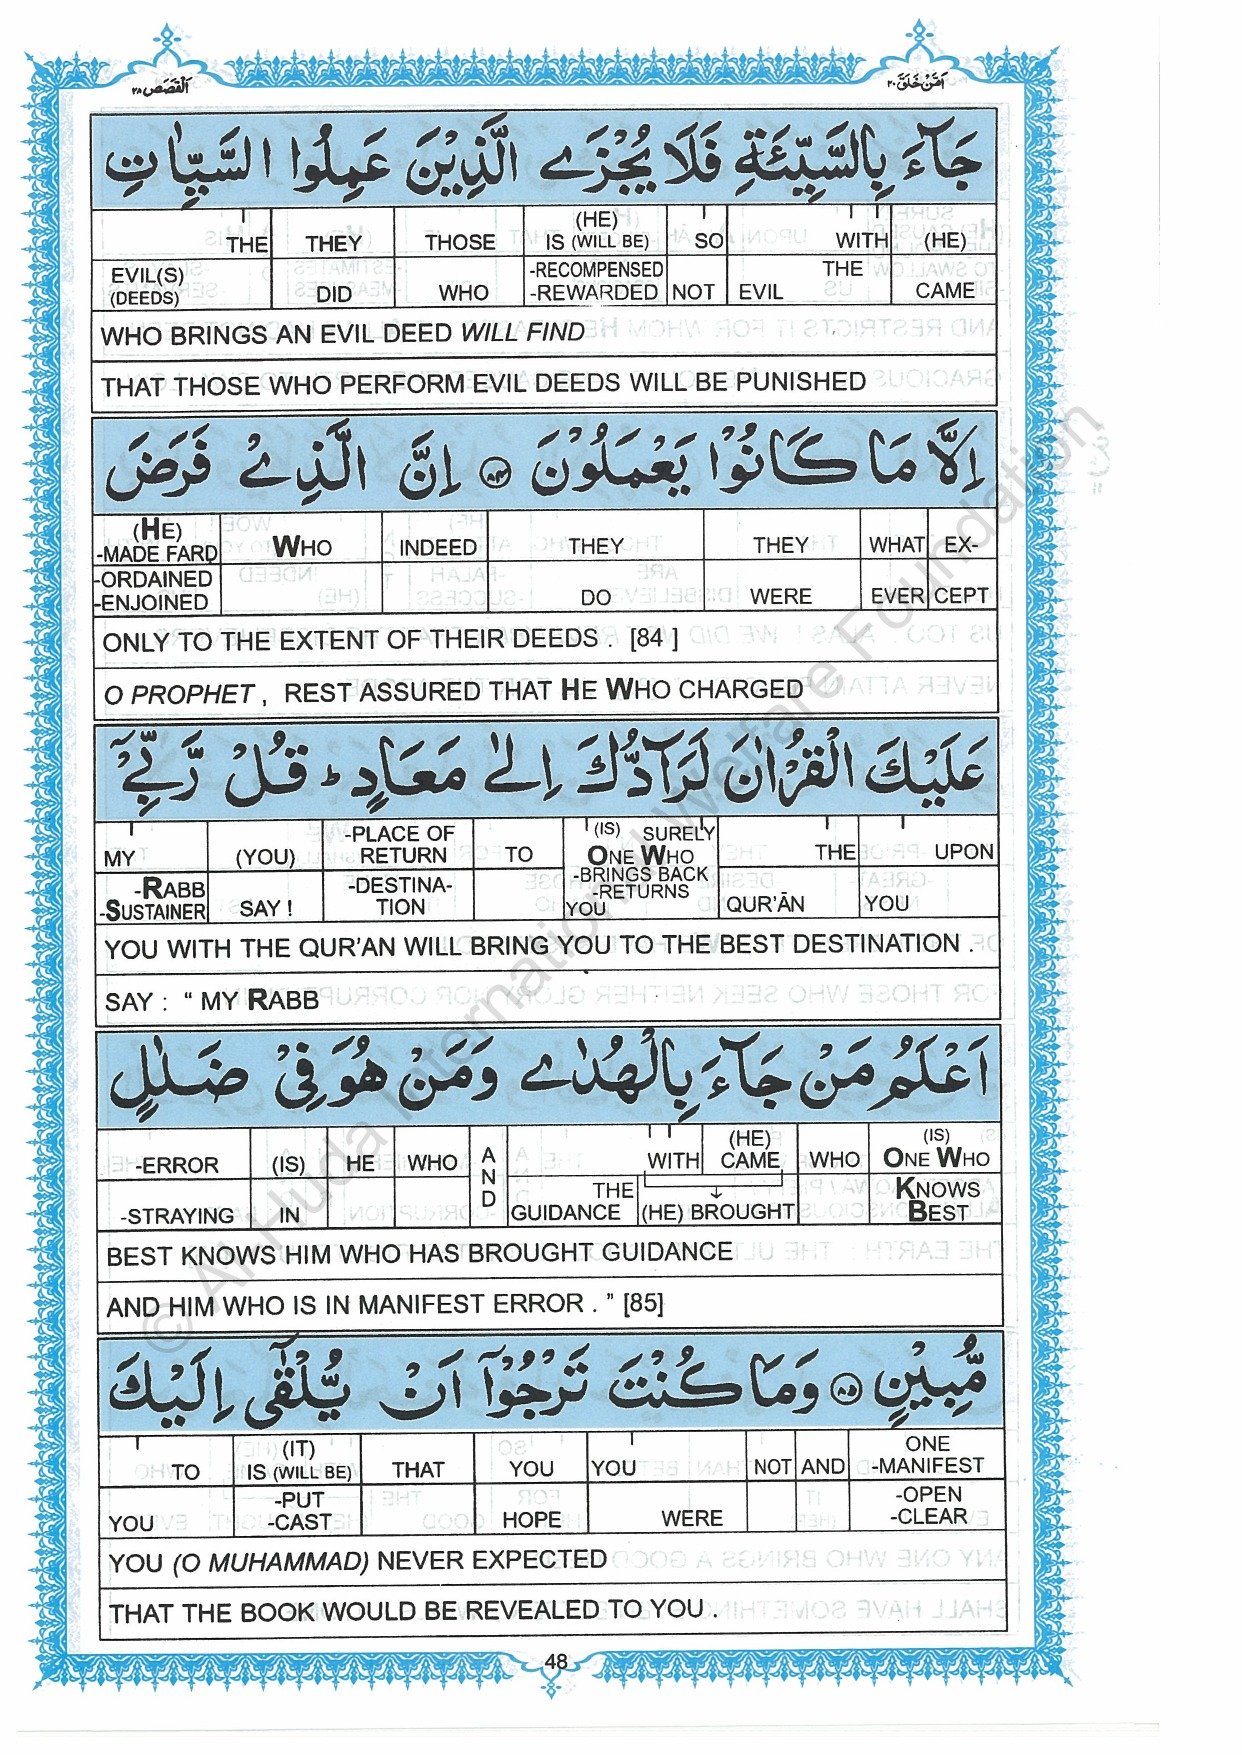 اَلْقَصَص ٢٨
اَمَّنْ خَلَقَ ٢٠
جَآءَ بِالسَّيِّئَةِ فَلَا يُجْزَى الَّذِيْنَ عَمِلُوا السَّيِّاٰتِ
THE THEY THOSE (HE) IS (WILL BE) SO WITH (HE)
EVIL(S) (DEEDS) DID WHO -RECOMPENSED -REWARDED NOT EVIL THE CAME
WHO BRINGS AN EVIL DEED WILL FIND
THAT THOSE WHO PERFORM EVIL DEEDS WILL BE PUNISHED
اِلَّا مَا كَانُوْا يَعْمَلُوْنَ ٨٤ اِنَّ الَّذِيْ فَرَضَ
(HE) -MADE FARD WHO INDEED THEY THEY WHAT EX-
-ORDAINED -ENJOINED DO WERE EVER CEPT
ONLY TO THE EXTENT OF THEIR DEEDS . [84 ]
O PROPHET , REST ASSURED THAT HE WHO CHARGED
عَلَيْكَ الْقُرْاٰنَ لَرَآدُّكَ اِلٰى مَعَادٍ ط قُلْ رَّبِّيْٓ
MY (YOU) -PLACE OF RETURN TO (IS) SURELY ONE WHO THE UPON
-RABB -SUSTAINER SAY ! -DESTINA- TION -BRINGS BACK -RETURNS YOU QUR'ĀN YOU
YOU WITH THE QUR'AN WILL BRING YOU TO THE BEST DESTINATION .
SAY : “ MY RABB
اَعْلَمُ مَنْ جَآءَ بِالْهُدٰى وَمَنْ هُوَ فِيْ ضَلٰلٍ
-ERROR (IS) HE WHO AND WITH (HE) CAME WHO (IS) ONE WHO
-STRAYING IN THE GUIDANCE (HE) BROUGHT KNOWS BEST
BEST KNOWS HIM WHO HAS BROUGHT GUIDANCE
AND HIM WHO IS IN MANIFEST ERROR . ” [85]
مُّبِيْنٍ ٨٥ وَمَا كُنْتَ تَرْجُوْٓا اَنْ يُّلْقٰٓى اِلَيْكَ
TO (IT) IS (WILL BE) THAT YOU YOU NOT AND ONE -MANIFEST
YOU -PUT -CAST HOPE WERE -OPEN -CLEAR
YOU (O MUHAMMAD) NEVER EXPECTED
THAT THE BOOK WOULD BE REVEALED TO YOU .
48
© Al-Huda International Welfare Foundation